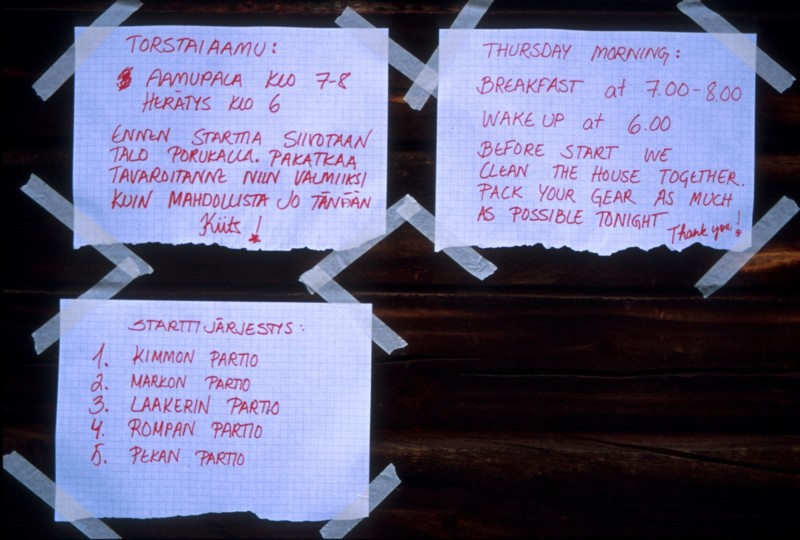 TORSTAIAAMU:
AAMUPALA KLO 7-8
HERÄTYS KLO 6
ENNEN STARTTIA SIIVOTAAN
TALO PORUKALLA. PAKATKAA
TAVAROITANNE NIIN VALMIIKSI
KUIN MAHDOLLISTA JO TÄNÄÄN
Kiits!
THURSDAY MORNING:
BREAKFAST at 7.00-8.00
WAKE UP at 6.00
BEFORE START WE
CLEAN THE HOUSE TOGETHER.
PACK YOUR GEAR AS MUCH
AS POSSIBLE TONIGHT
Thank you!
STARTTIJÄRJESTYS:
1. KIMMON PARTIO
2. MARKON PARTIO
3. LAAKERIN PARTIO
4. ROMPAN PARTIO
5. PEKAN PARTIO